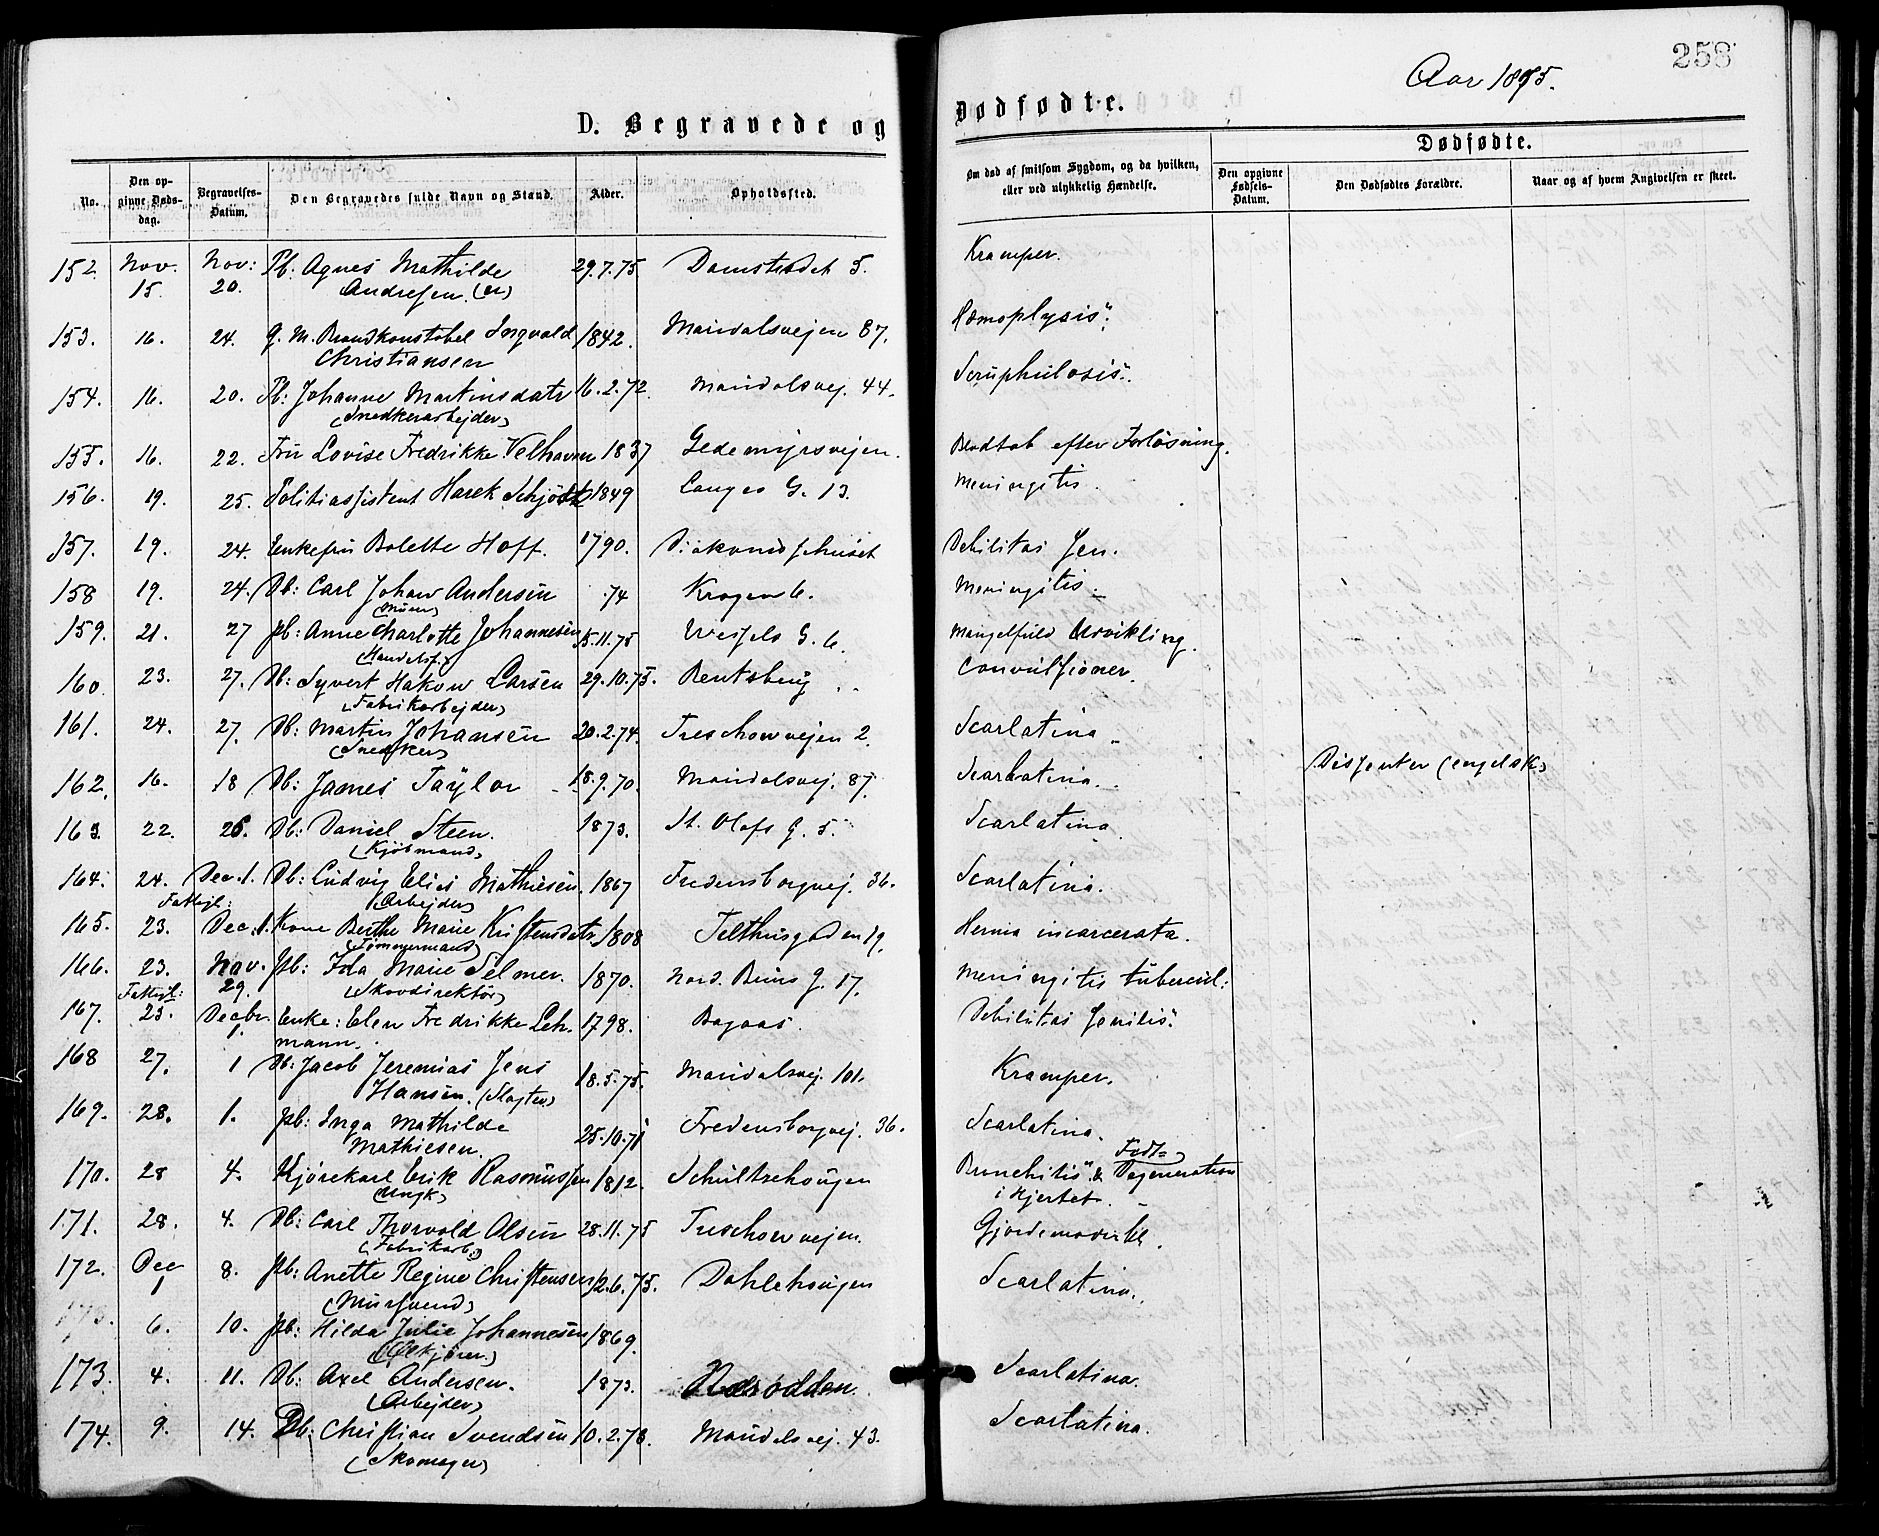 258
Aar 1875.
D. Begravede og Dødfødte.
No. Den opgivne Dødsdag. Begravelses-Datum. Den Begravedes fulde Navn og Stand. Alder. Opholdssted. Om død af smitsom Sygdom, og da hvilken, eller ved ulykkelig Hændelse. Dødfødte.
Den opgivne Fødsels-Datum. Den Dødfødtes Forældre. Naar og af hvem Angivelsen er skeet.
152 Nov. 15. Nov: 20. Pb: Agnes Mathilde 29.7.75 Damstredet 5. Kramper.
Andresen.
153. 16. 24. G. M. Brandkonstabel Ingvald 1842. Maridalsvejen 87. Hæmoplysis.
Christiansen
154. 16. 20. Pb: Johanne Martinsdatr 16.2.72. Maridalsvej. 44. Scruphulosis.
(Snedkerarbejder)
155. 16. 22. Fru Lovise Fredrikke Velhaven 1837 Gedemyrsvejen. Blodtab efter Forløsning.
156. 19. 25. Politiassistent Harek Schjødt 1849 Langes G. 13. Meningitis.
157. 19. 24. Enkefru Bolette Hoff. 1790. Diakonissehuset Debilitas Sen.
158 19. 24. Db: Carl Johan Andersen 74 Krogen 6. Meningitis.
(Murer)
159. 21. 27 pb: Anne Charlotte Johannesen 15.11.75 Wessels G. 6. Mangelfuld Udvikling.
(Handelsf.)
160. 23. 27. Db: Syvert Hakon Larsen 29.10.75. Bentsebrug Convulsioner.
(Fabrikarbejder)
161. 24. 27. Db: Martin Johansen 20.2.74. Treschowvejen 2. Scarlatina
(Snedker)
162. 16. 18 Db: James Taylor 18.9.70. Maridalsvej. 87. Scarlatina. Dissenter (engelsk)
163 22. 26. Db: Daniel Steen. 1873. St. Olafs G. 5. Scarlatina
(Kjøbmand)
164. 24. Dec. 1. Db: Ludvig Elias Mathiesen. 1867 Fredensborgvej. 36. Scarlatina.
Fattigl: (Arbejder)
165. 23. Dec. 1. Kone Berthe Marie Kristensdatr. 1808 Telthusgaden 19. Hernia incarcerata.
(Tømmermand)
166. 23. Nov. 29. pb: Ida Marie Selmer. 1870. Nord. Bruns G. 17. Meningitis tubercul:
Fattigl: (Skovdirektør)
167. 23. Decbr. 1. Enke: Elen Fredrikke Leh- 1798. Bagaas. Debilitas senilis.
mann.
168 27. 1 Db: Jacob Jeremias Jens 18.5.75. Maridalsvej. 101. Kramper.
Hansen. (Slagter)
169. 28. 1. pb: Inga Mathilde 25.10.71 Fredensborgvej. 36. Scarlatina.
Mathiesen.
170. 28 4. Kjørekarl Erik Rasmussen 1812. Schultzehougen Bronchitis & Fedt= Degeneration
(Ungk) i Hjertet.
171. 28. 4. Db: Carl Thorvald Olsen 28.11.75 Treschowvejen. Gjordemoderatt.
(Fabrikarb.)
172. Dec 1 8. pb: Anette Regine Christensen 12.6.75. Dahlehougen Scarlatina.
(Mursvend)
173. 6. 10. pb: Hilda Julie Johannesen 1869.
(Ølkjører.)
173. 4. 11. Db: Axel Andersen. 1873. Nesodden. Scarlatina.
(Arbejder)
174. 9. 14. Db: Christian Svendsen 10.2.73. Maridalsvej. 43. Scarlatina.
(Skomager)